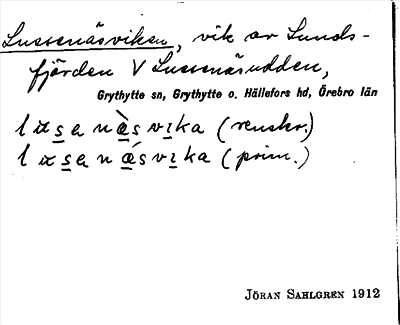 Lussenäsviken, vik av Lunds-
fjärden V Lussenäsudden,
Grythytte sn, Grythytte o. Hällefors hd, Örebro län
(renskr.)
(prim.)
JÖRAN SAHLGREN 1912